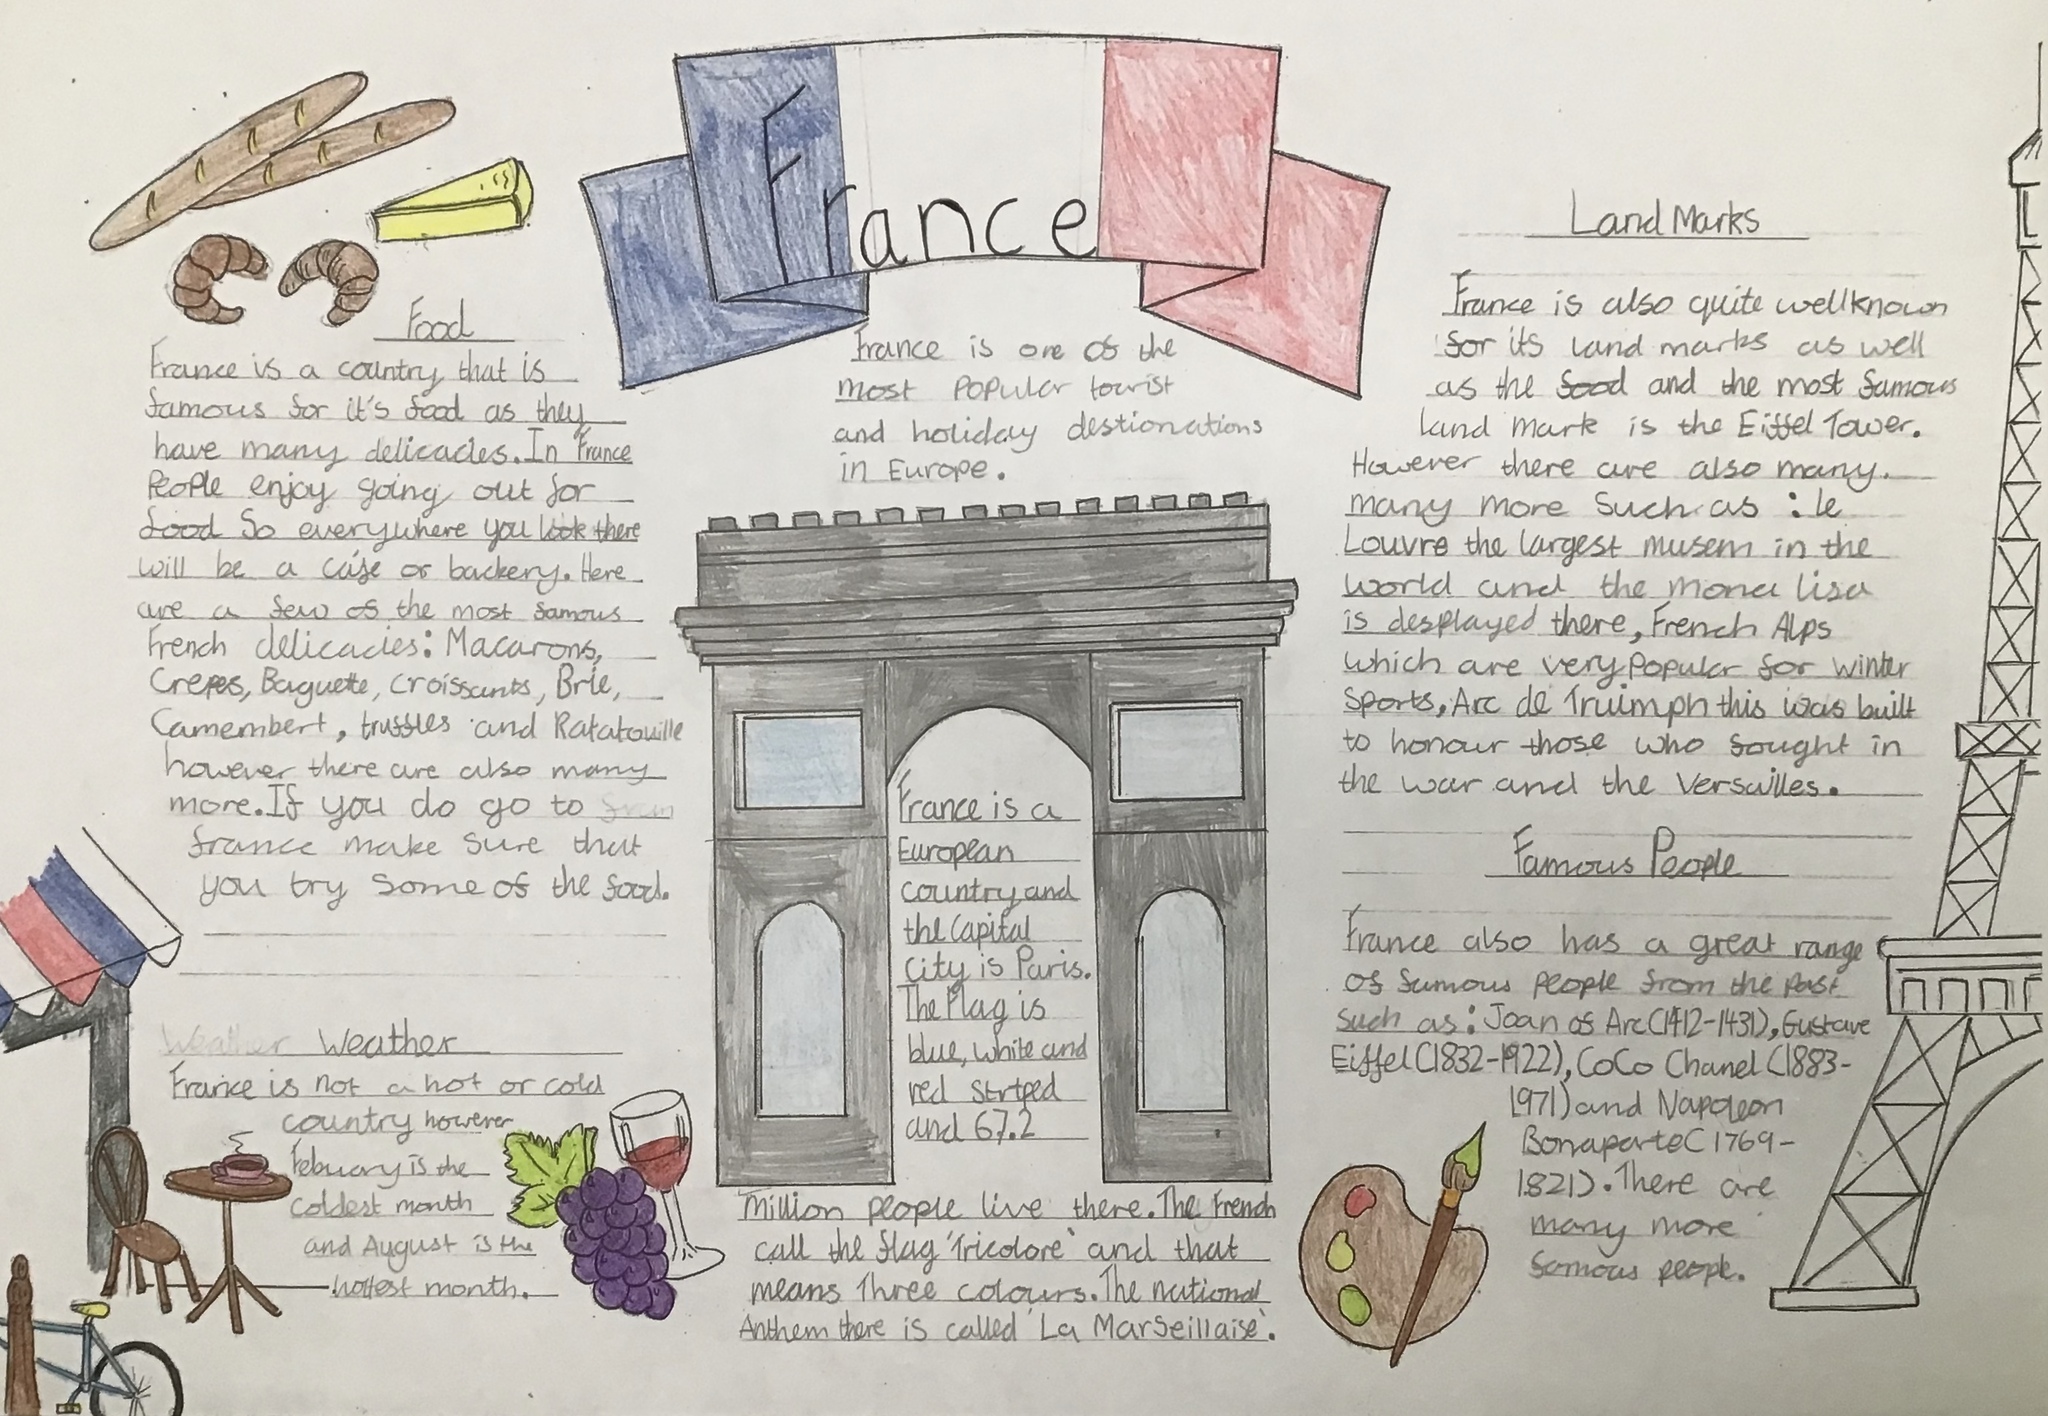 France
Food
France is a country that is
famous for it's food as they
have many delicacies. In France
People enjoy going out for
food so everywhere you look there
will be a cáfe or backery. Here
are a few of the most famous
French delicacies: Macarons,
Crepes, Baguette, croissants, Brie,
Camembert, truffles and Ratatouille
however there are also many
more. If you do go to
france make sure that
you try some of the food.
Weather Weather
France is not a hot or cold
country however
Febuary is the
coldest month
and August is the
hottest month.
France is one of the
most popular tourist
and holiday destionations
in Europe.
France is a
European
country and
the Capital
city is Paris.
The Flag is
blue, white and
red striped
and 67.2
million people live there. The French
call the flag 'Tricolore' and that
means Three colours. The national
Anthem there is called 'La Marseillaise'.
Land Marks
France is also quite wellknown
for its land marks as well
as the food and the most famous
land mark is the Eiffel Tower.
However there are also many.
many more such as : le
Louvre the largest musem in the
world and the mona lisa
is desplayed there, French Alps
which are very popular for winter
sports, Arc de Truimph this was built
to honour those who fought in
the war and the Versailles.
Famous People
France also has a great range
of famous people from the past
such as: Joan of Arc (1412-1431), Gustave
Eiffel (1832-1922), CoCo Chanel (1883-
1971) and Napoleon
Bonaparte (1769-
1821). There are
many more
famous people.